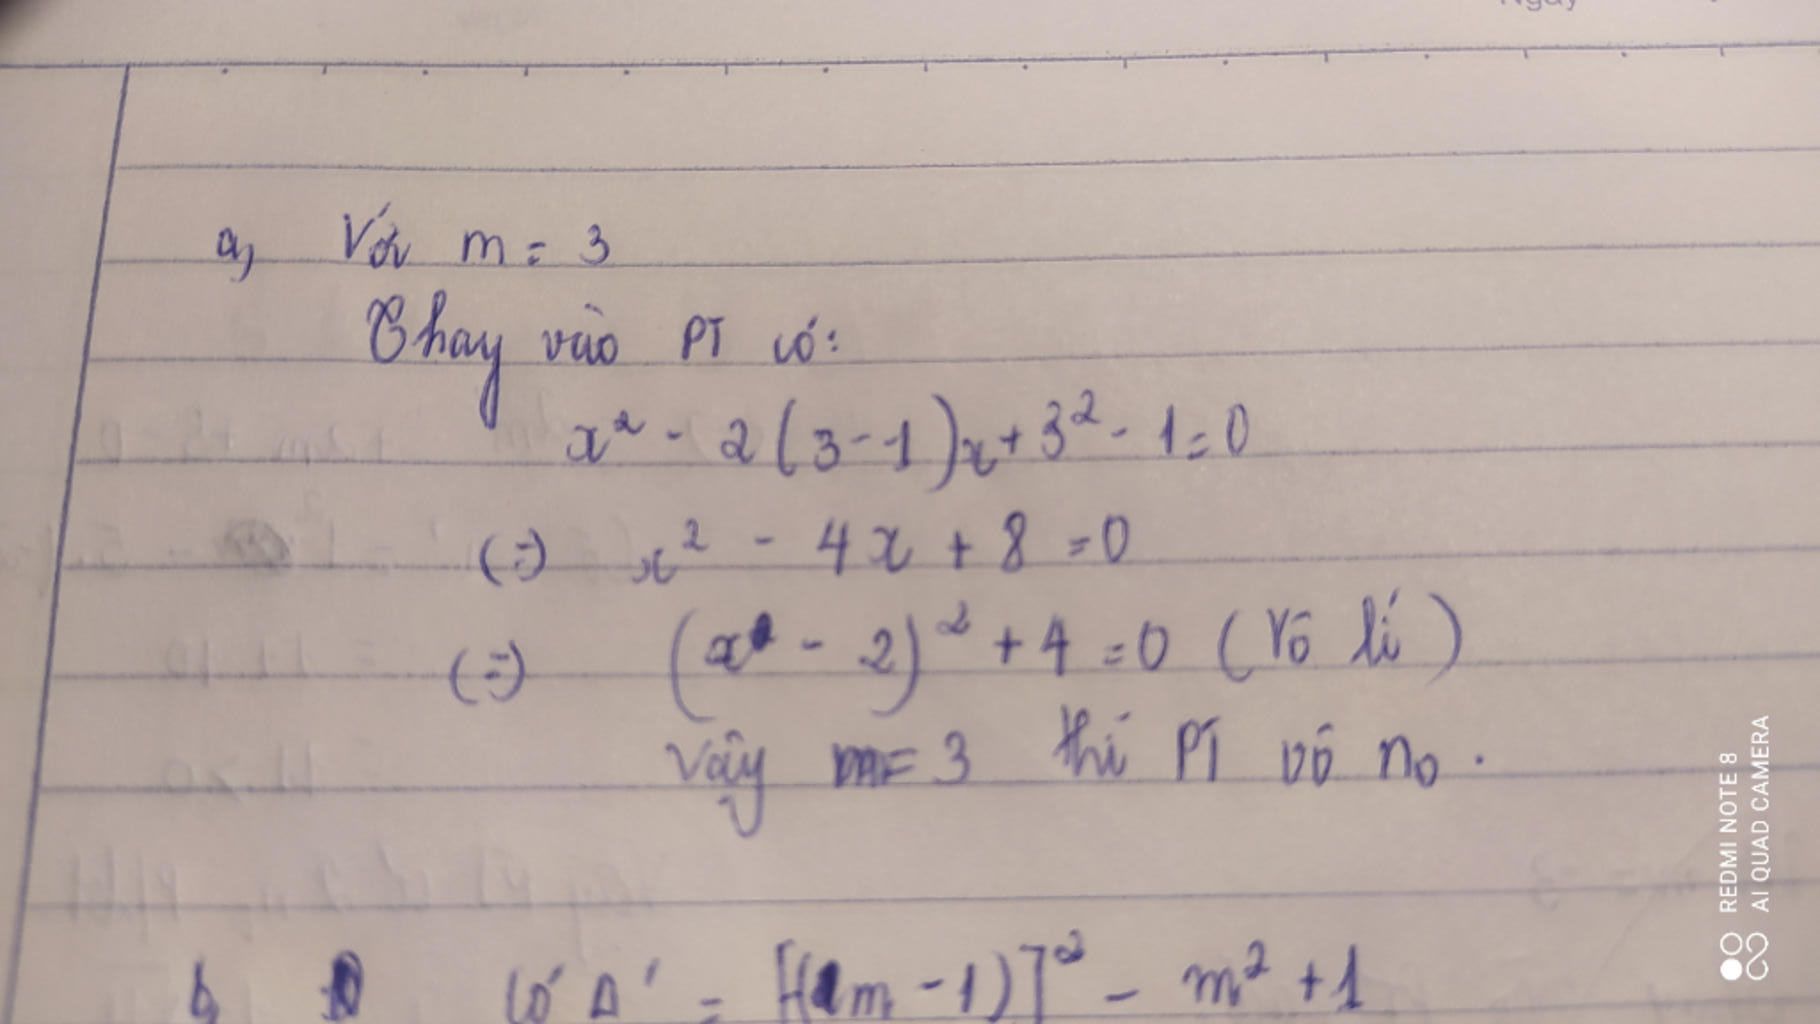 Ngày
a, Với m = 3
Thay vào PT có:
x² - 2(3-1)x + 3² - 1 = 0
(=) x² - 4x + 8 = 0
(=) (x - 2)² + 4 = 0 (Vô lí)
Vậy m = 3 thì PT vô no.
b, Có Δ' = [-(m - 1)]² - m² + 1
REDMI NOTE 8
AI QUAD CAMERA